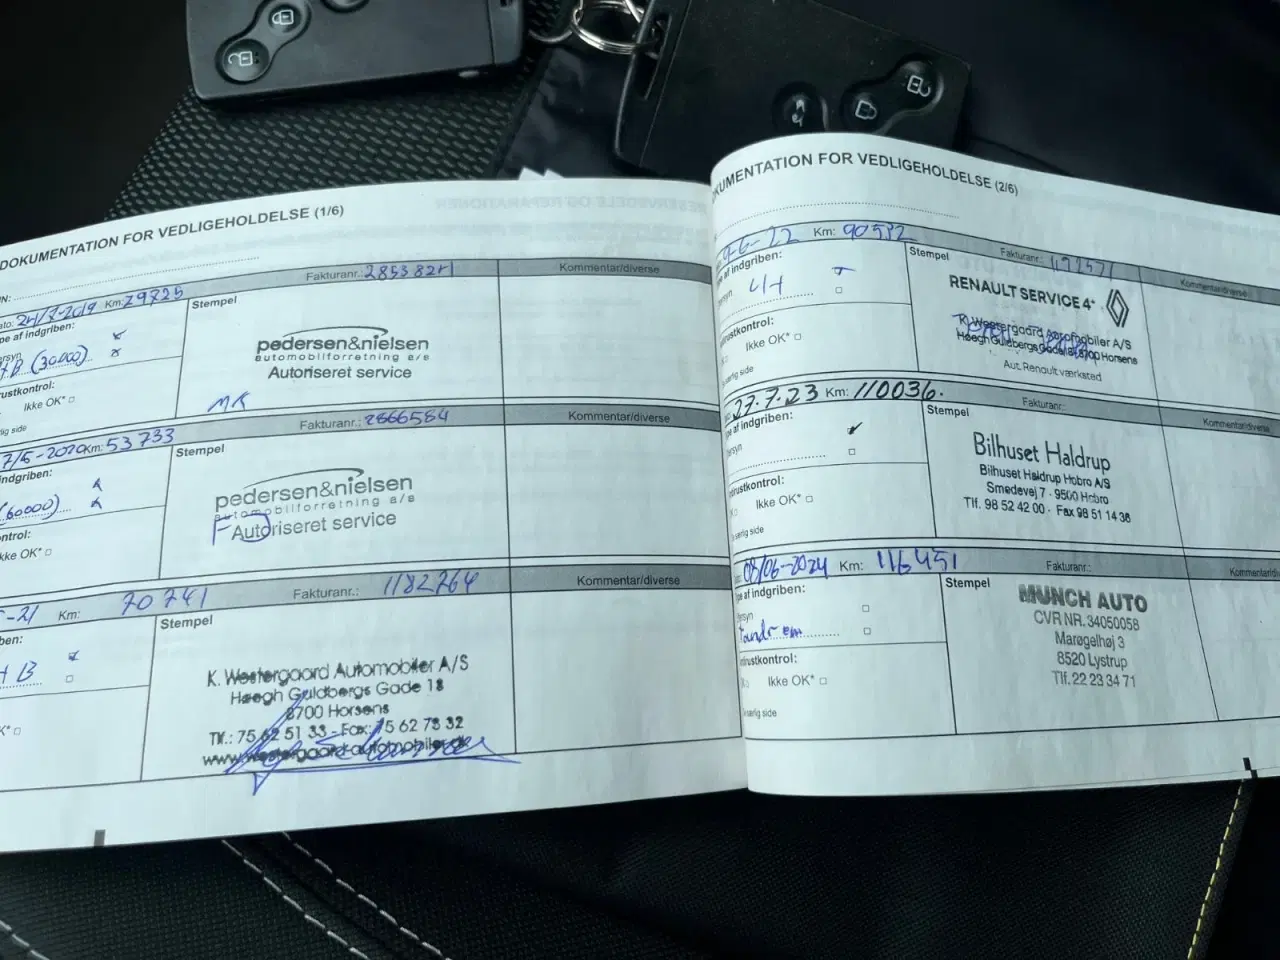 DOKUMENTATION FOR VEDLIGEHOLDELSE (1/6)
Km: 29725
Fakturanr.: 2853821
Kommentar/diverse
Stempel
pe af indgriben:
B (30000)
rustkontrol:
Ikke OK*
rlig side
pedersen&nielsen
automobilforretning a/s
Autoriseret service
MK
7/5-2020 Km: 53733
Fakturanr.: 2866584
Kommentar/diverse
Stempel
ndgriben:
(60000)
ontrol:
kke OK*
pedersen&nielsen
automobilforretning a/s
Autoriseret service
-21 Km: 70741
Fakturanr.: 1182264
Kommentar/diverse
Stempel
ben:
B
K*
K. Westergaard Automobiler A/S
Høegh Guldbergs Gade 18
8700 Horsens
Tlf.: 75 62 51 33 - Fax: 75 62 78 32
www.westergaard-automobiler.dk
KUMENTATION FOR VEDLIGEHOLDELSE (2/6)
9-6-22 Km: 90512
Fakturanr.:
Kommentar/diverse
Stempel
pe af indgriben:
ersyn
ntrustkontrol:
Ikke OK*
særlig side
RENAULT SERVICE 4*
K. Westergaard Automobiler A/S
Høegh Guldbergs Gade 18, 8700 Horsens
Aut. Renault værksted
27.7.23 Km: 110036.
Fakturanr.:
Kommentar/diverse
Stempel
pe af indgriben:
ersyn
ntirustkontrol:
Ikke OK*
særlig side
Bilhuset Haldrup
Bilhuset Haldrup Hobro A/S
Smedevej 7 - 9500 Hobro
Tlf. 98 52 42 00 - Fax 98 51 14 36
08/06-2024 Km: 116451
Fakturanr.:
Kommentar/diverse
Stempel
ype af indgriben:
ersyn
ntirustkontrol:
Ikke OK*
særlig side
MUNCH AUTO
CVR NR. 34050058
Marøgelhøj 3
8520 Lystrup
Tlf. 22 23 34 71